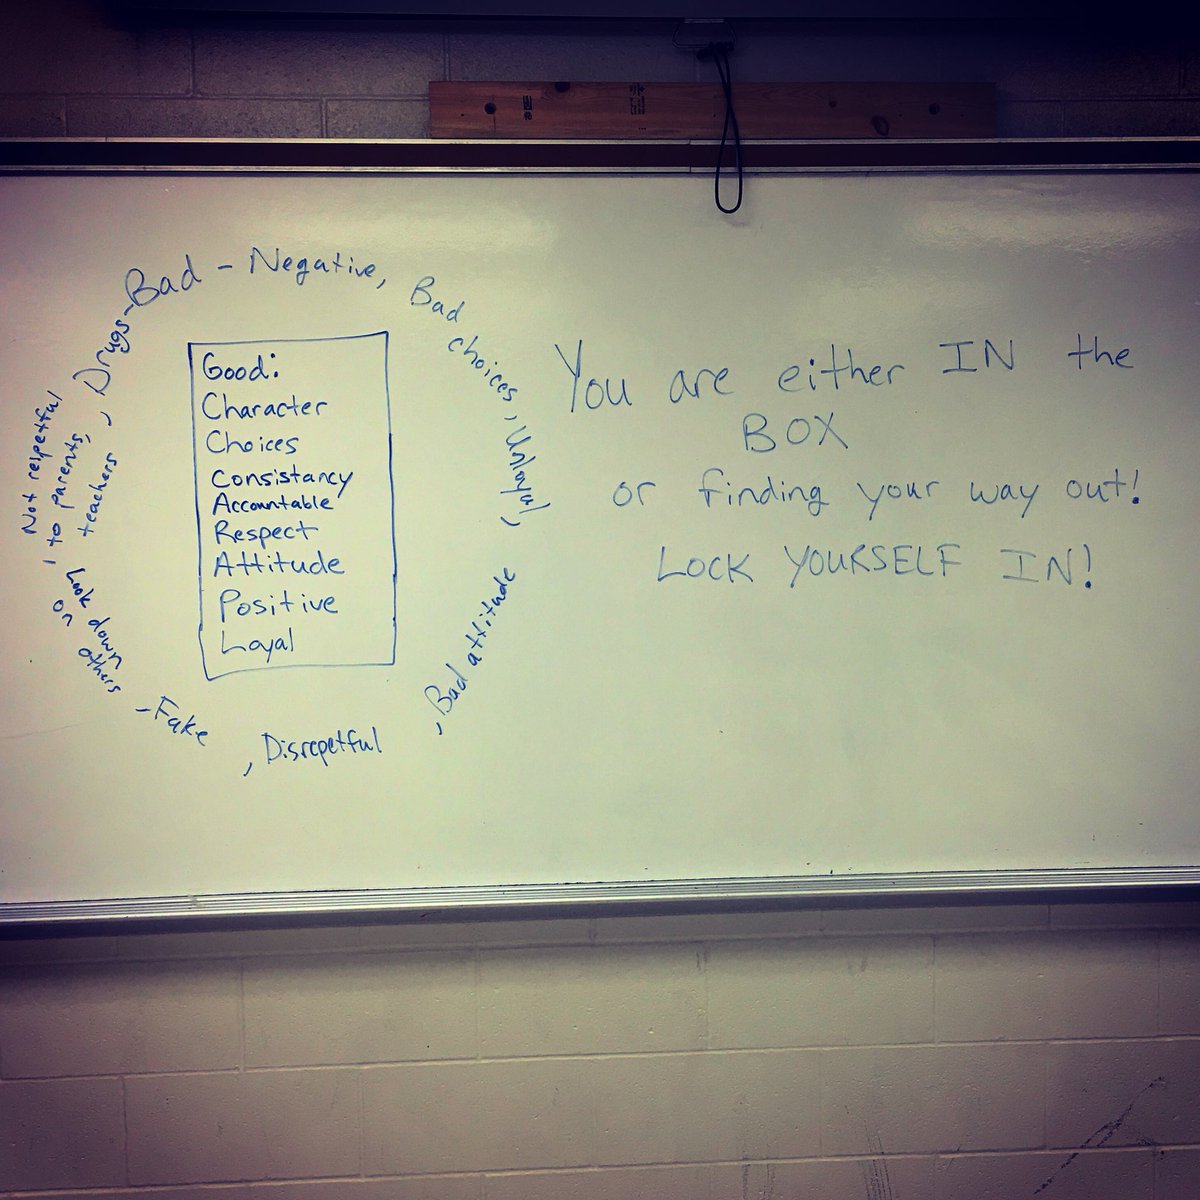 Bad - Negative, Bad
choices, Unloyal,
Bad attitude
, Disrepetful
, Fake
Look down
on others
Not respetful
to parents,
teachers
, Drugs-
Good:
Character
Choices
Consistancy
Accountable
Respect
Attitude
Positive
Loyal
You are either IN the
BOX
or finding your way out!
LOCK YOURSELF IN!